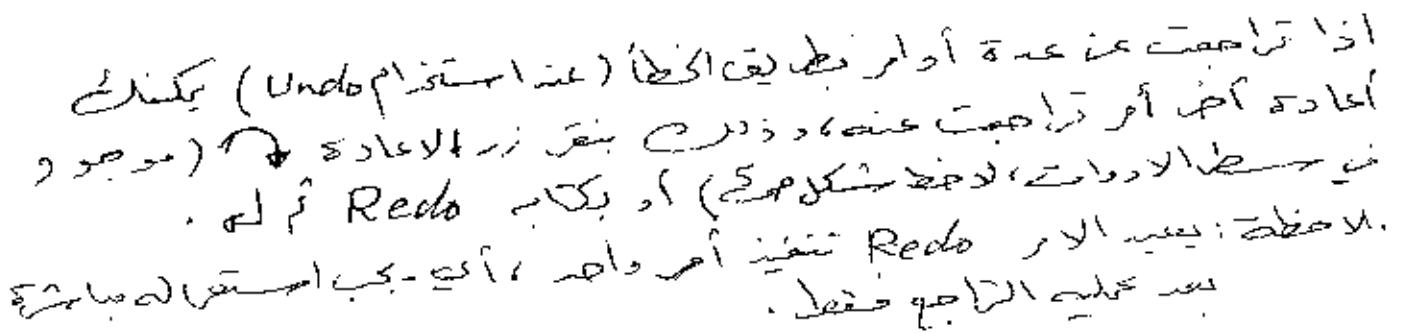 اذا تراجعت عن عدة أوامر بطريق الخطأ (عند استخدام Undo) يمكنك
أعادة آخر أمر تراجعت عنه، وذلك بنقر زر الاعادة (موجود
في الادوات، لاحظ شكل) أو بكتابه Redo ثم ↵.
ملاحظة: يعيد الامر Redo تنفيذ أمر واحد، أي يجب استعماله مباشرة
بعد عمليه التراجع فقط.